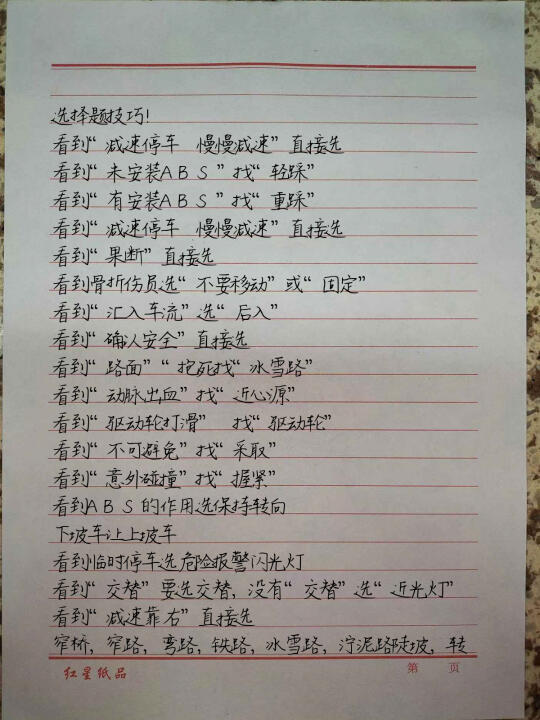 选择题技巧!
看到“减速停车 慢慢减速”直接选
看到“未安装ABS”找“轻踩”
看到“有安装ABS”找“重踩”
看到“减速停车 慢慢减速”直接选
看到“果断”直接选
看到骨折伤员选“不要移动”或“固定”
看到“汇入车流”选“后入”
看到“确认安全”直接选
看到“路面”“抱死找“冰雪路”
看到“动脉出血”找“近心源”
看到“驱动轮打滑” 找“驱动轮”
看到“不可避免”找“采取”
看到“意外碰撞”找“握紧”
看到ABS的作用选保持转向
下坡车让上坡车
看到临时停车选危险报警闪光灯
看到“交替”要选交替,没有“交替”选“近光灯”
看到“减速靠右”直接选
窄桥,窄路,弯路,铁路,冰雪路,泞泥路陡坡,转
红星纸品 第 页